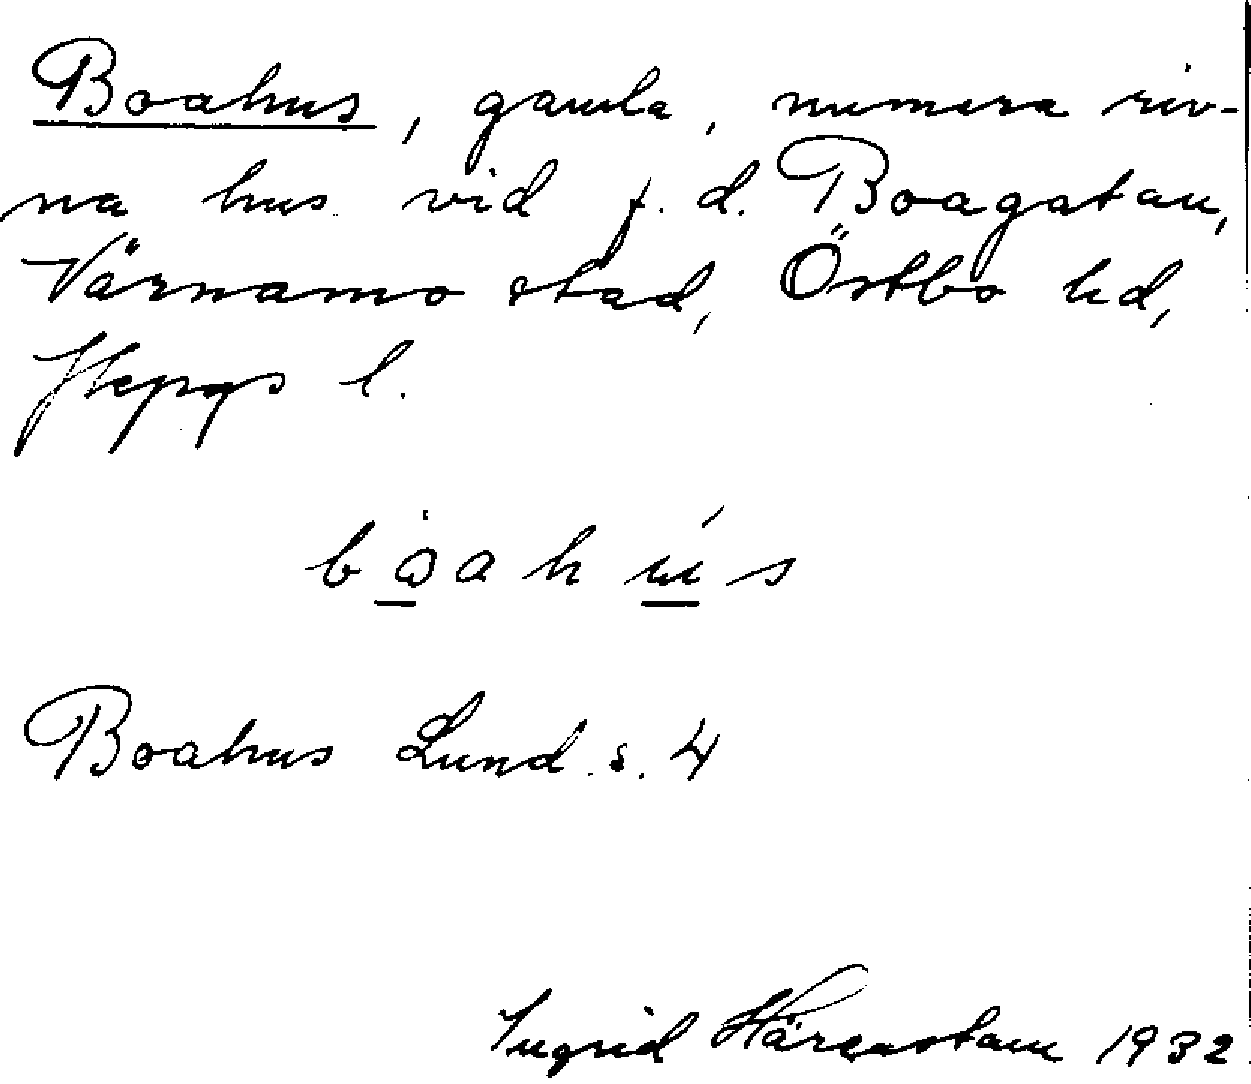 Boahus, gamla, numera riv-
na hus vid f. d. Boagatan,
Värnamo stad, Östbo hd,
Jkpgs l.
boahus
Boahus Lund s. 4
Ingrid Härenstam 1932